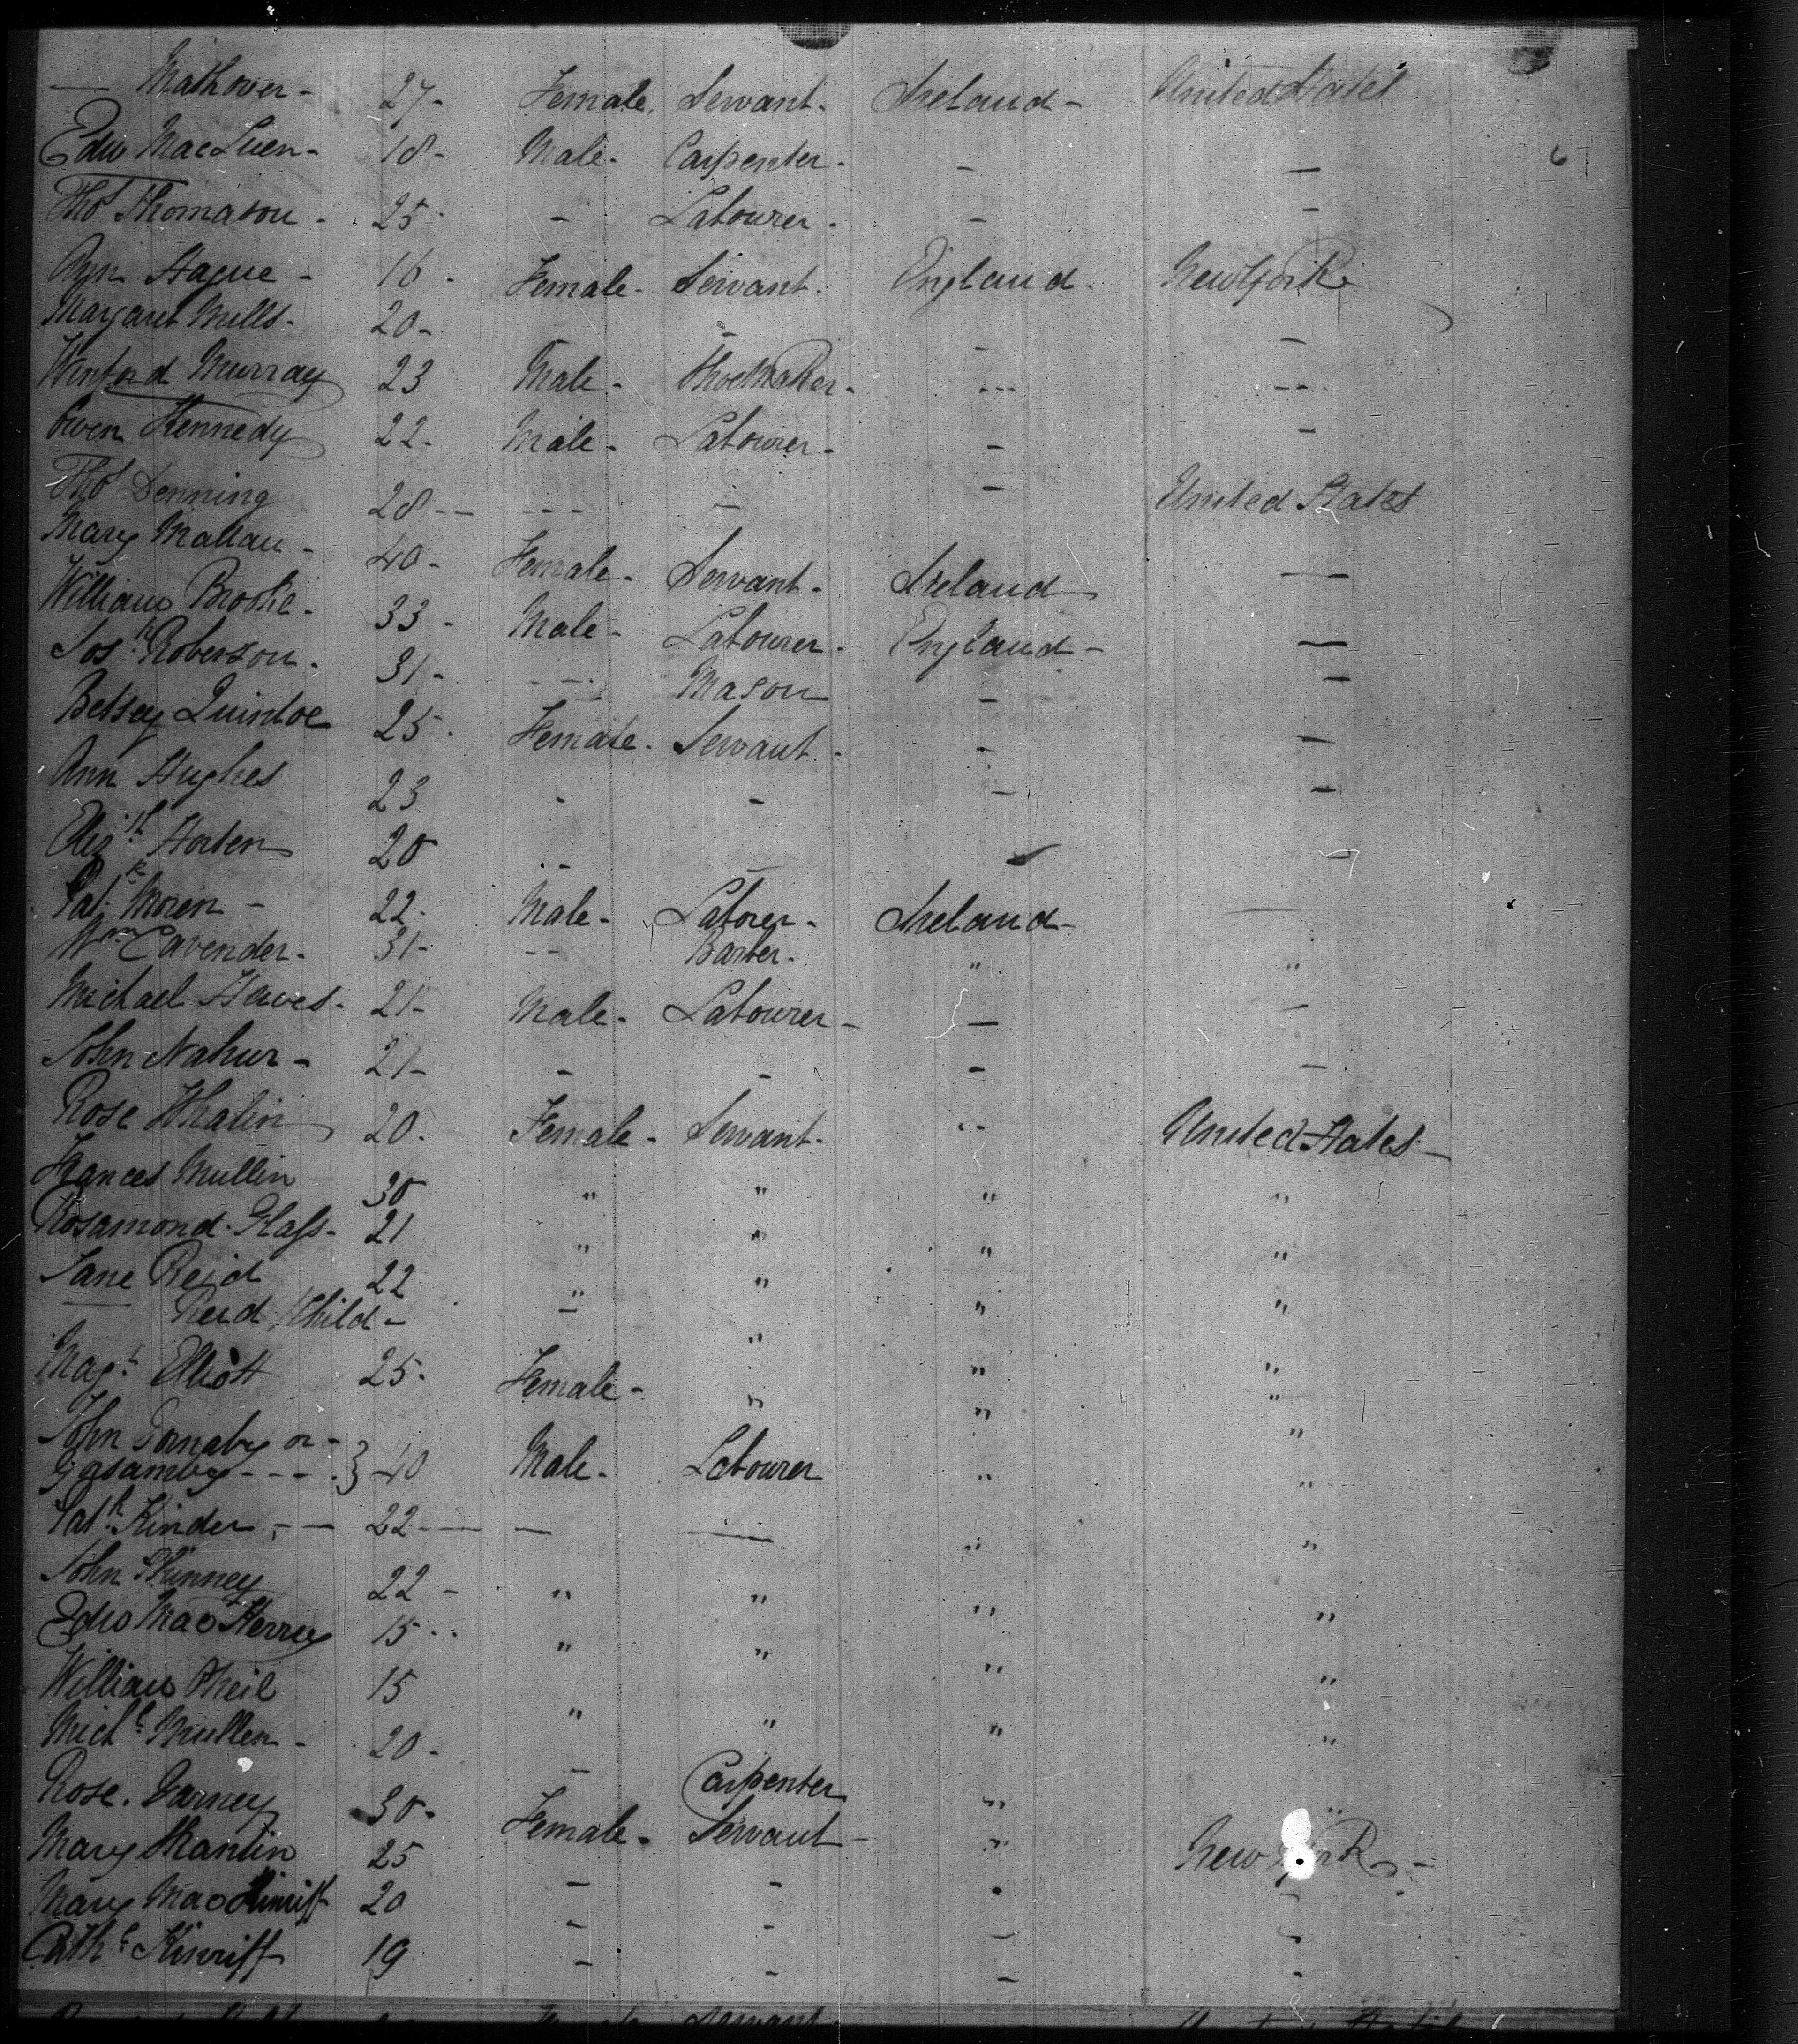 — Mathover - 27- Female. Servant- Ireland- United States
Edw MacLuen- 18- Male- Carpenter- - —
Tho Thomason - 25- - Labourer- - -
Ann Hague - 16- Female- Servant. England- New York
Margaret Mills- 20- - - —
Winford Murray 23 Male- ShoeMaker- --- ---
Owen Kennedy 22- Male- Labourer- - -
Tho Denning 28-- --- — - United States
Mary Mallau - 40- Female- Servant- Ireland —
William Brooke- 33- Male- Labourer- England- —
Josh Roberson- 31- --- Mason - -
Betsey Quintoe 25- Female- Servant- - —
Ann Hughes 23 - - - -
Elizth Horten 20 -- - -
Patk Moren - 22- Male- Laborer- Ireland- —
Wm Cavender- 31- -- Barber- " "
Michael Hewes- 21- Male- Labourer- — -
John Nahur - 21- - - - -
Rose Whalin 20- Female- Servant- -- United States-
Frances Mullin 30 " " " "
Rosamond Glass- 21 " " " "
Jane Reid 22 " " " "
— Reid, Child- - " "
Magt Elliott 25- Female- " " "
John Dornaby or-
Gosamby--- } 40 Male- Labourer " "
Patk Kinder, -- 22-- — — " "
John Skinney 22- " " " "
Edw MacKerry 15-- " " " "
William Sheil 15 " " " "
Michl Mullen- 20- - Carpenter " "
Rose. Varney 30- Female- Servant- " New York-
Mary Shanlin 25 - - - -
Mary Mac 20 - - - -
Cathe Kinriff 19 - - - -
Servant